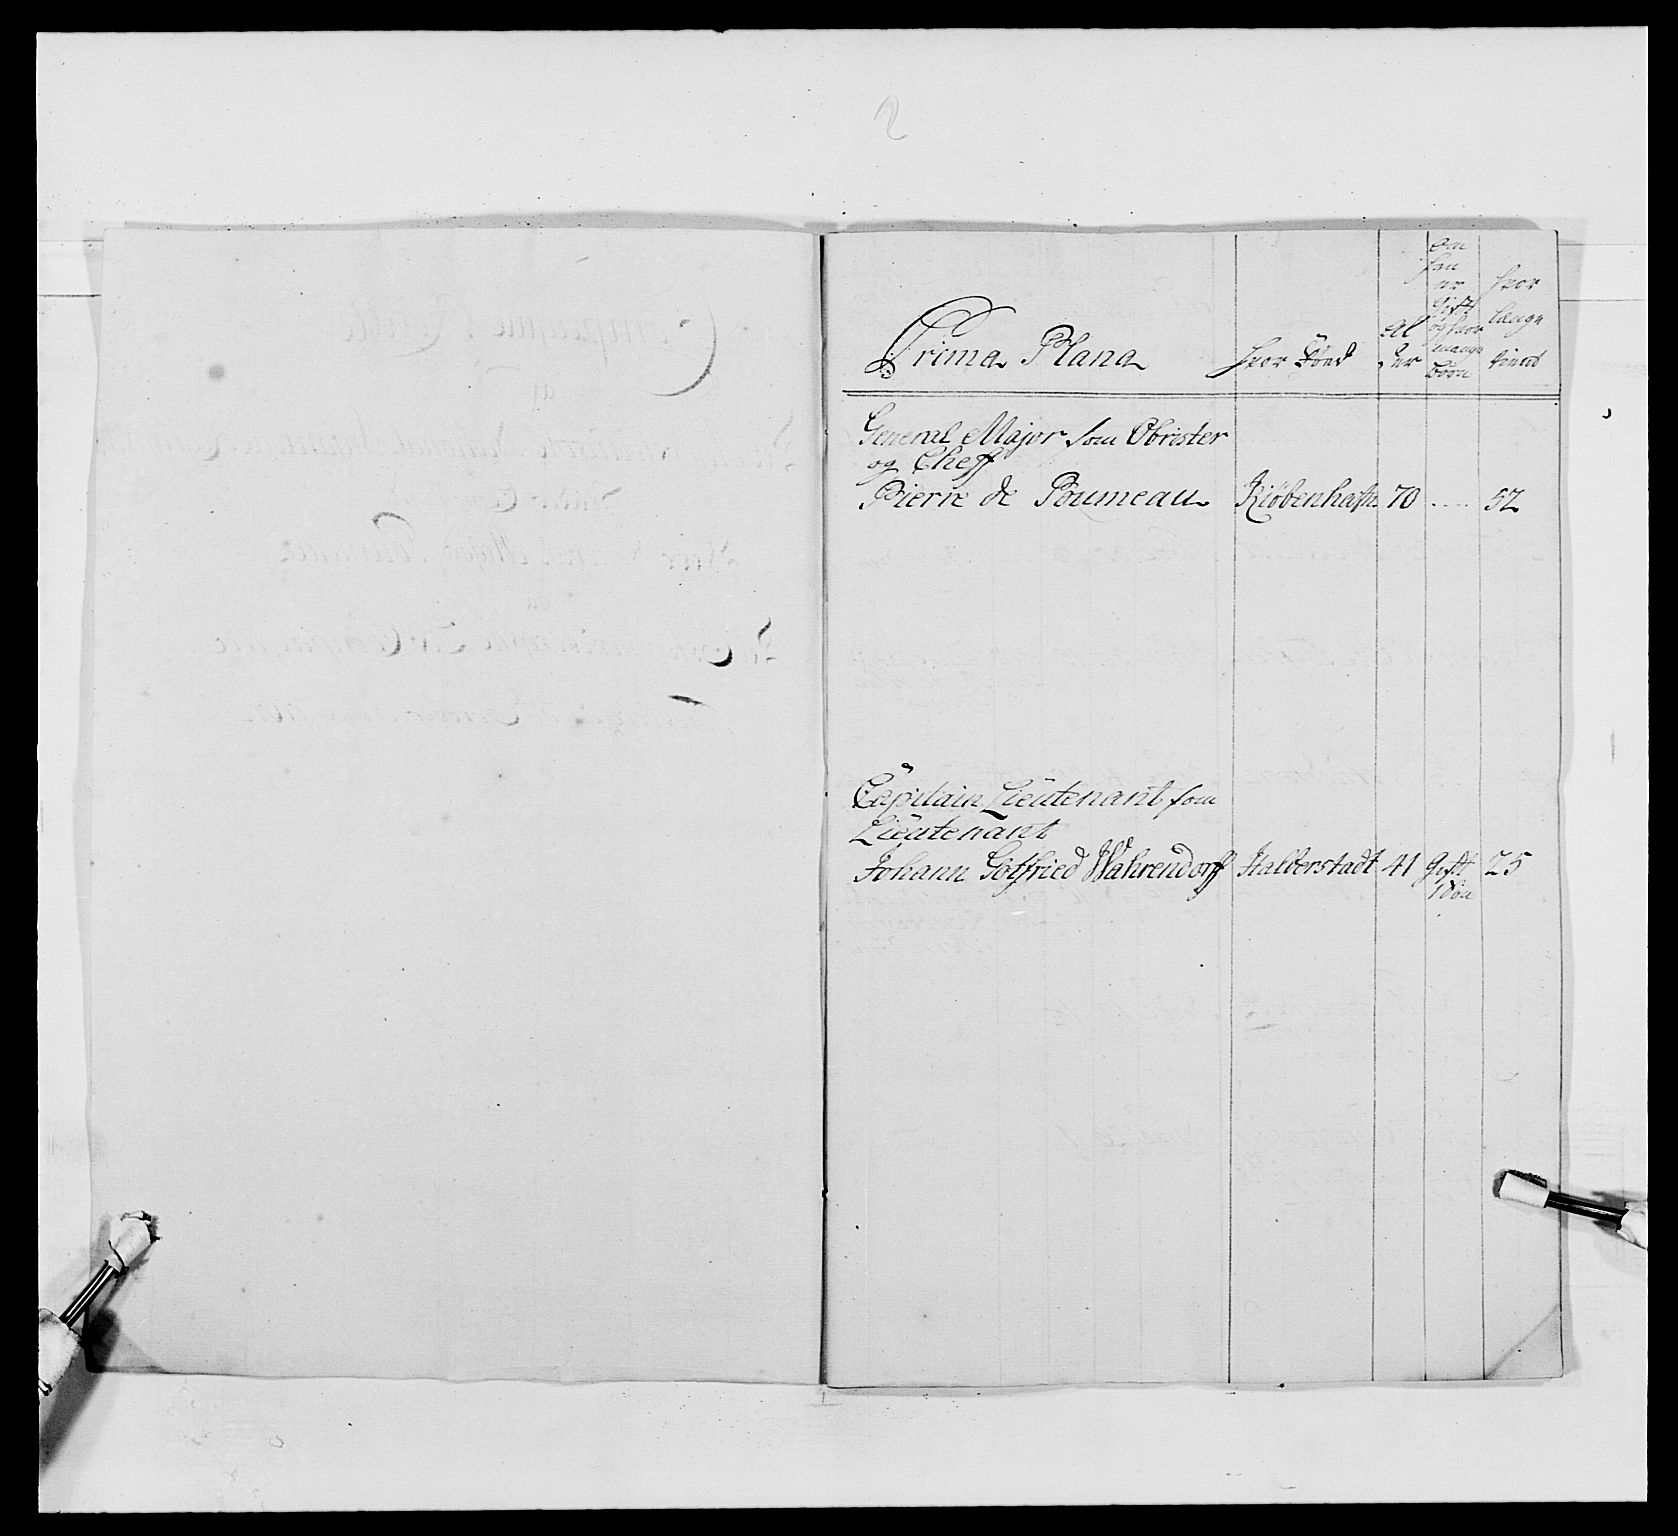 2
Prima Plana
hvor Föed
Al
der
Om
han
er
Gift
og hvor
mange
Börn
hvor
længe
tient
General Major som Obrister
og Cheff
Pierre de Poumeau Kiöbenhafn 70 .... 52
Capitain Lieutenant som
Lieutenant
Johann Gotfried Wahrendorff Halberstadt 41 Gift 25
1 Bön